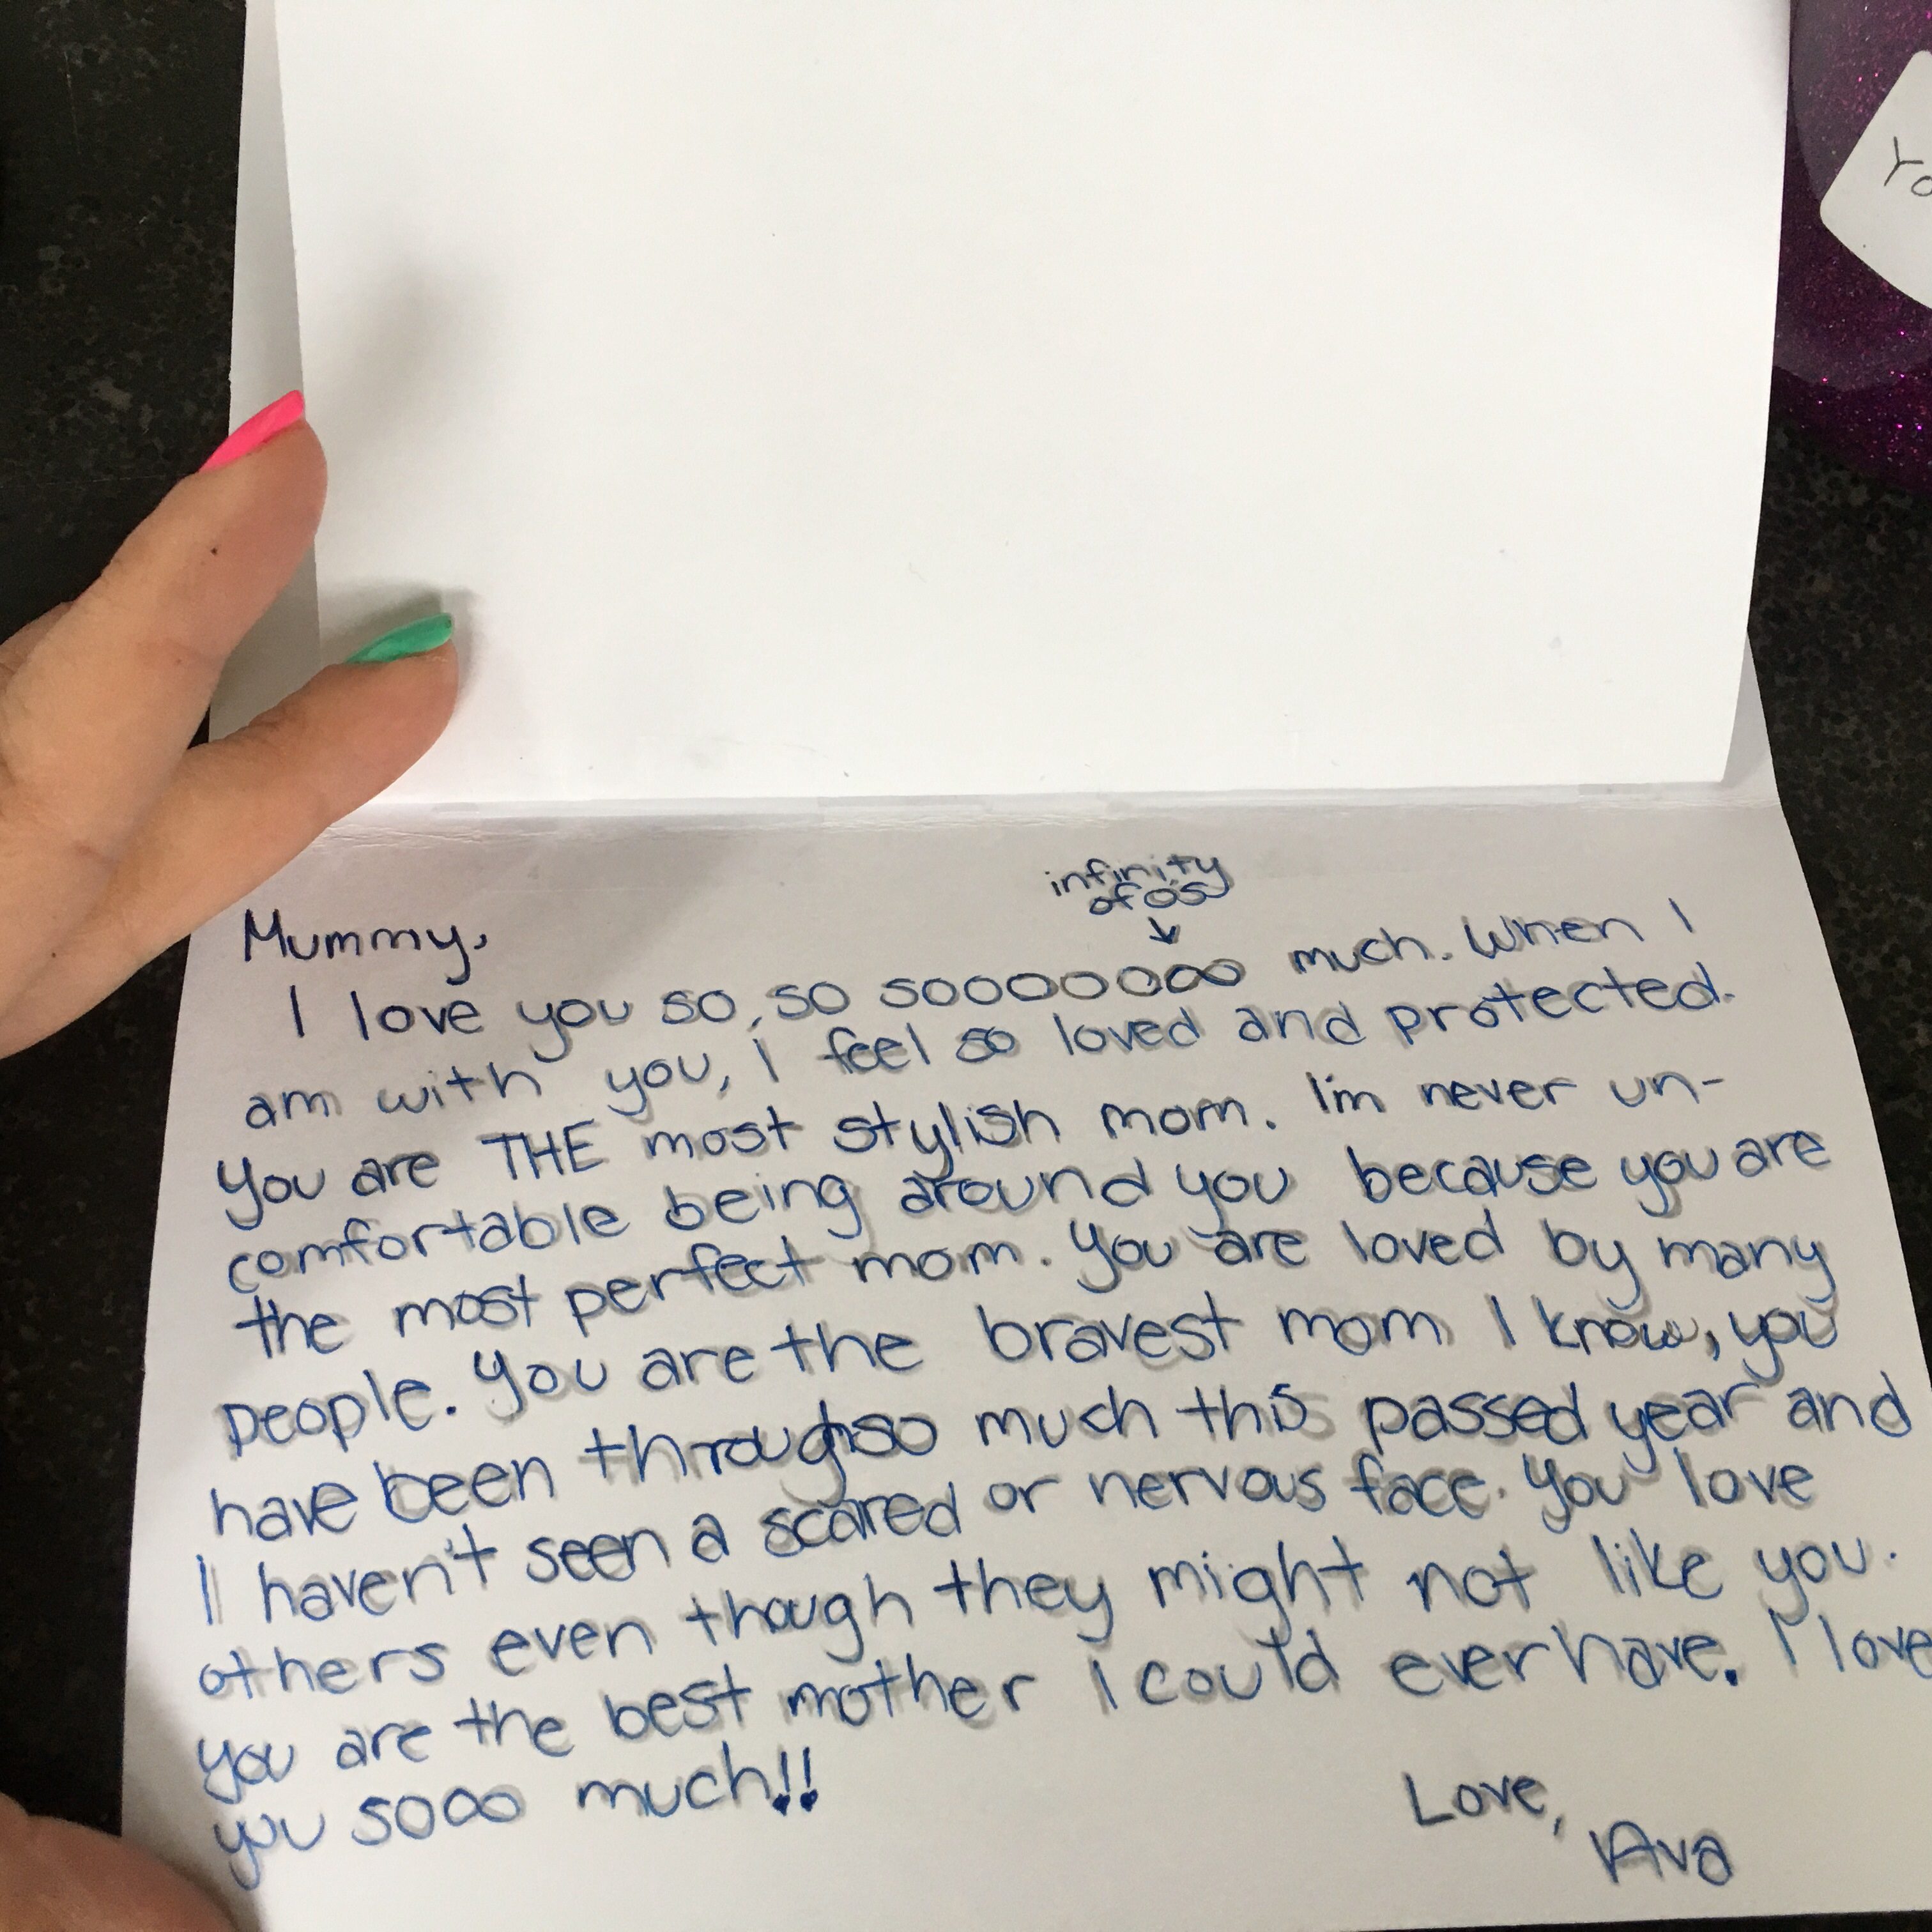 Yo
infinity
of o's
Mummy,
I love you so, so soooooooo much. When I
am with you, I feel so loved and protected.
You are THE most stylish mom. I'm never un-
comfortable being around you because you are
the most perfect mom. You are loved by many
people. You are the bravest mom I know, you
have been through so much this passed year and
I haven't seen a scared or nervous face. You love
others even though they might not like you.
you are the best mother I could ever have. I love
you sooo much!!
Love,
Ava